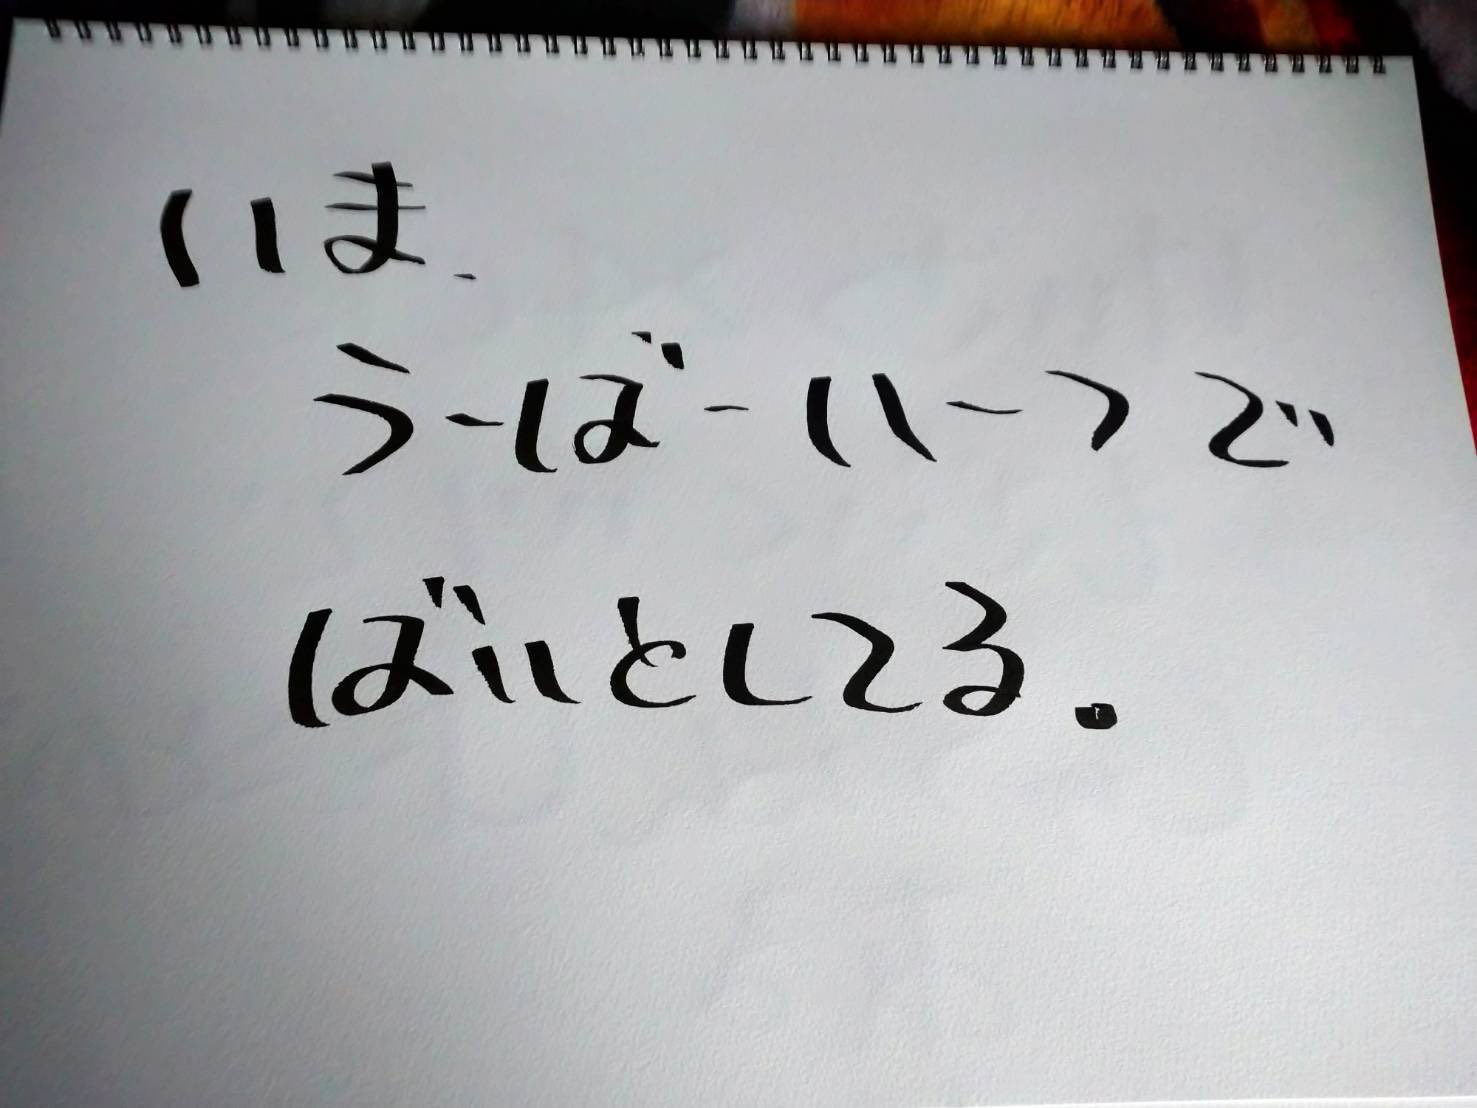 いま、
うーばーいーつで
ばいとしてる.